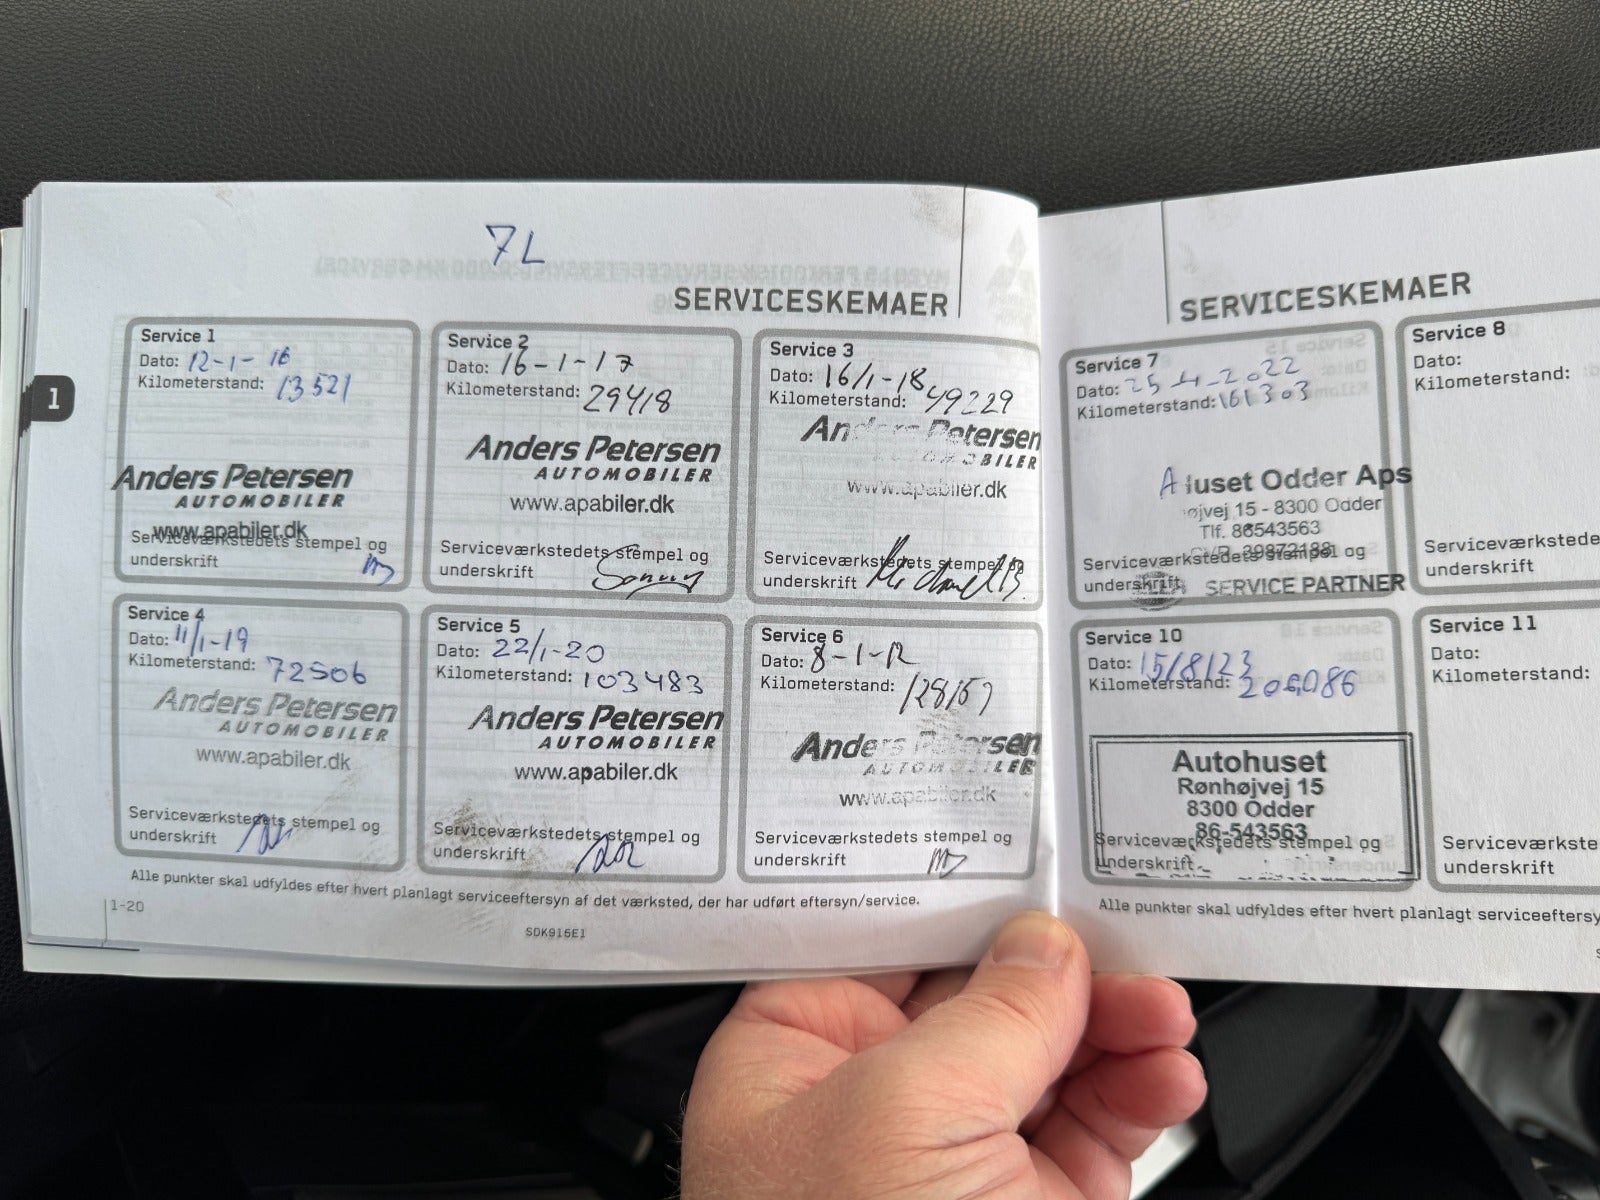 7L
SERVICESKEMAER
1
Service 1
Dato: 12-1-16
Kilometerstand: 13521
Anders Petersen
AUTOMOBILER
www.apabiler.dk
Serviceværkstedets stempel og
underskrift
Service 2
Dato: 16-1-17
Kilometerstand: 29418
Anders Petersen
AUTOMOBILER
www.apabiler.dk
Serviceværkstedets stempel og
underskrift
Service 3
Dato: 16/1-18
Kilometerstand: 49229
Anders Petersen
AUTOMOBILER
www.apabiler.dk
Serviceværkstedets stempel og
underskrift
Service 4
Dato: 11/1-19
Kilometerstand: 72506
Anders Petersen
AUTOMOBILER
www.apabiler.dk
Serviceværkstedets stempel og
underskrift
Service 5
Dato: 22/1-20
Kilometerstand: 103483
Anders Petersen
AUTOMOBILER
www.apabiler.dk
Serviceværkstedets stempel og
underskrift
Service 6
Dato: 8-1-
Kilometerstand:
Anders Petersen
AUTOMOBILER
www.apabiler.dk
Serviceværkstedets stempel og
underskrift
Alle punkter skal udfyldes efter hvert planlagt serviceeftersyn af det værksted, der har udført eftersyn/service.
1-20
SDK915E1
SERVICESKEMAER
Service 7
Dato: 25-4-2022
Kilometerstand: 161303
Huset Odder Aps
højvej 15 - 8300 Odder
Tlf. 86543563
Serviceværkstedets stempel og
underskrift
SERVICE PARTNER
Service 8
Dato:
Kilometerstand:
Serviceværkstede
underskrift
Service 10
Dato: 15/8/23
Kilometerstand: 206086
Autohuset
Rønhøjvej 15
8300 Odder
86-543563
Serviceværkstedets stempel og
underskrift
Service 11
Dato:
Kilometerstand:
Serviceværkste
underskrift
Alle punkter skal udfyldes efter hvert planlagt serviceeftersy